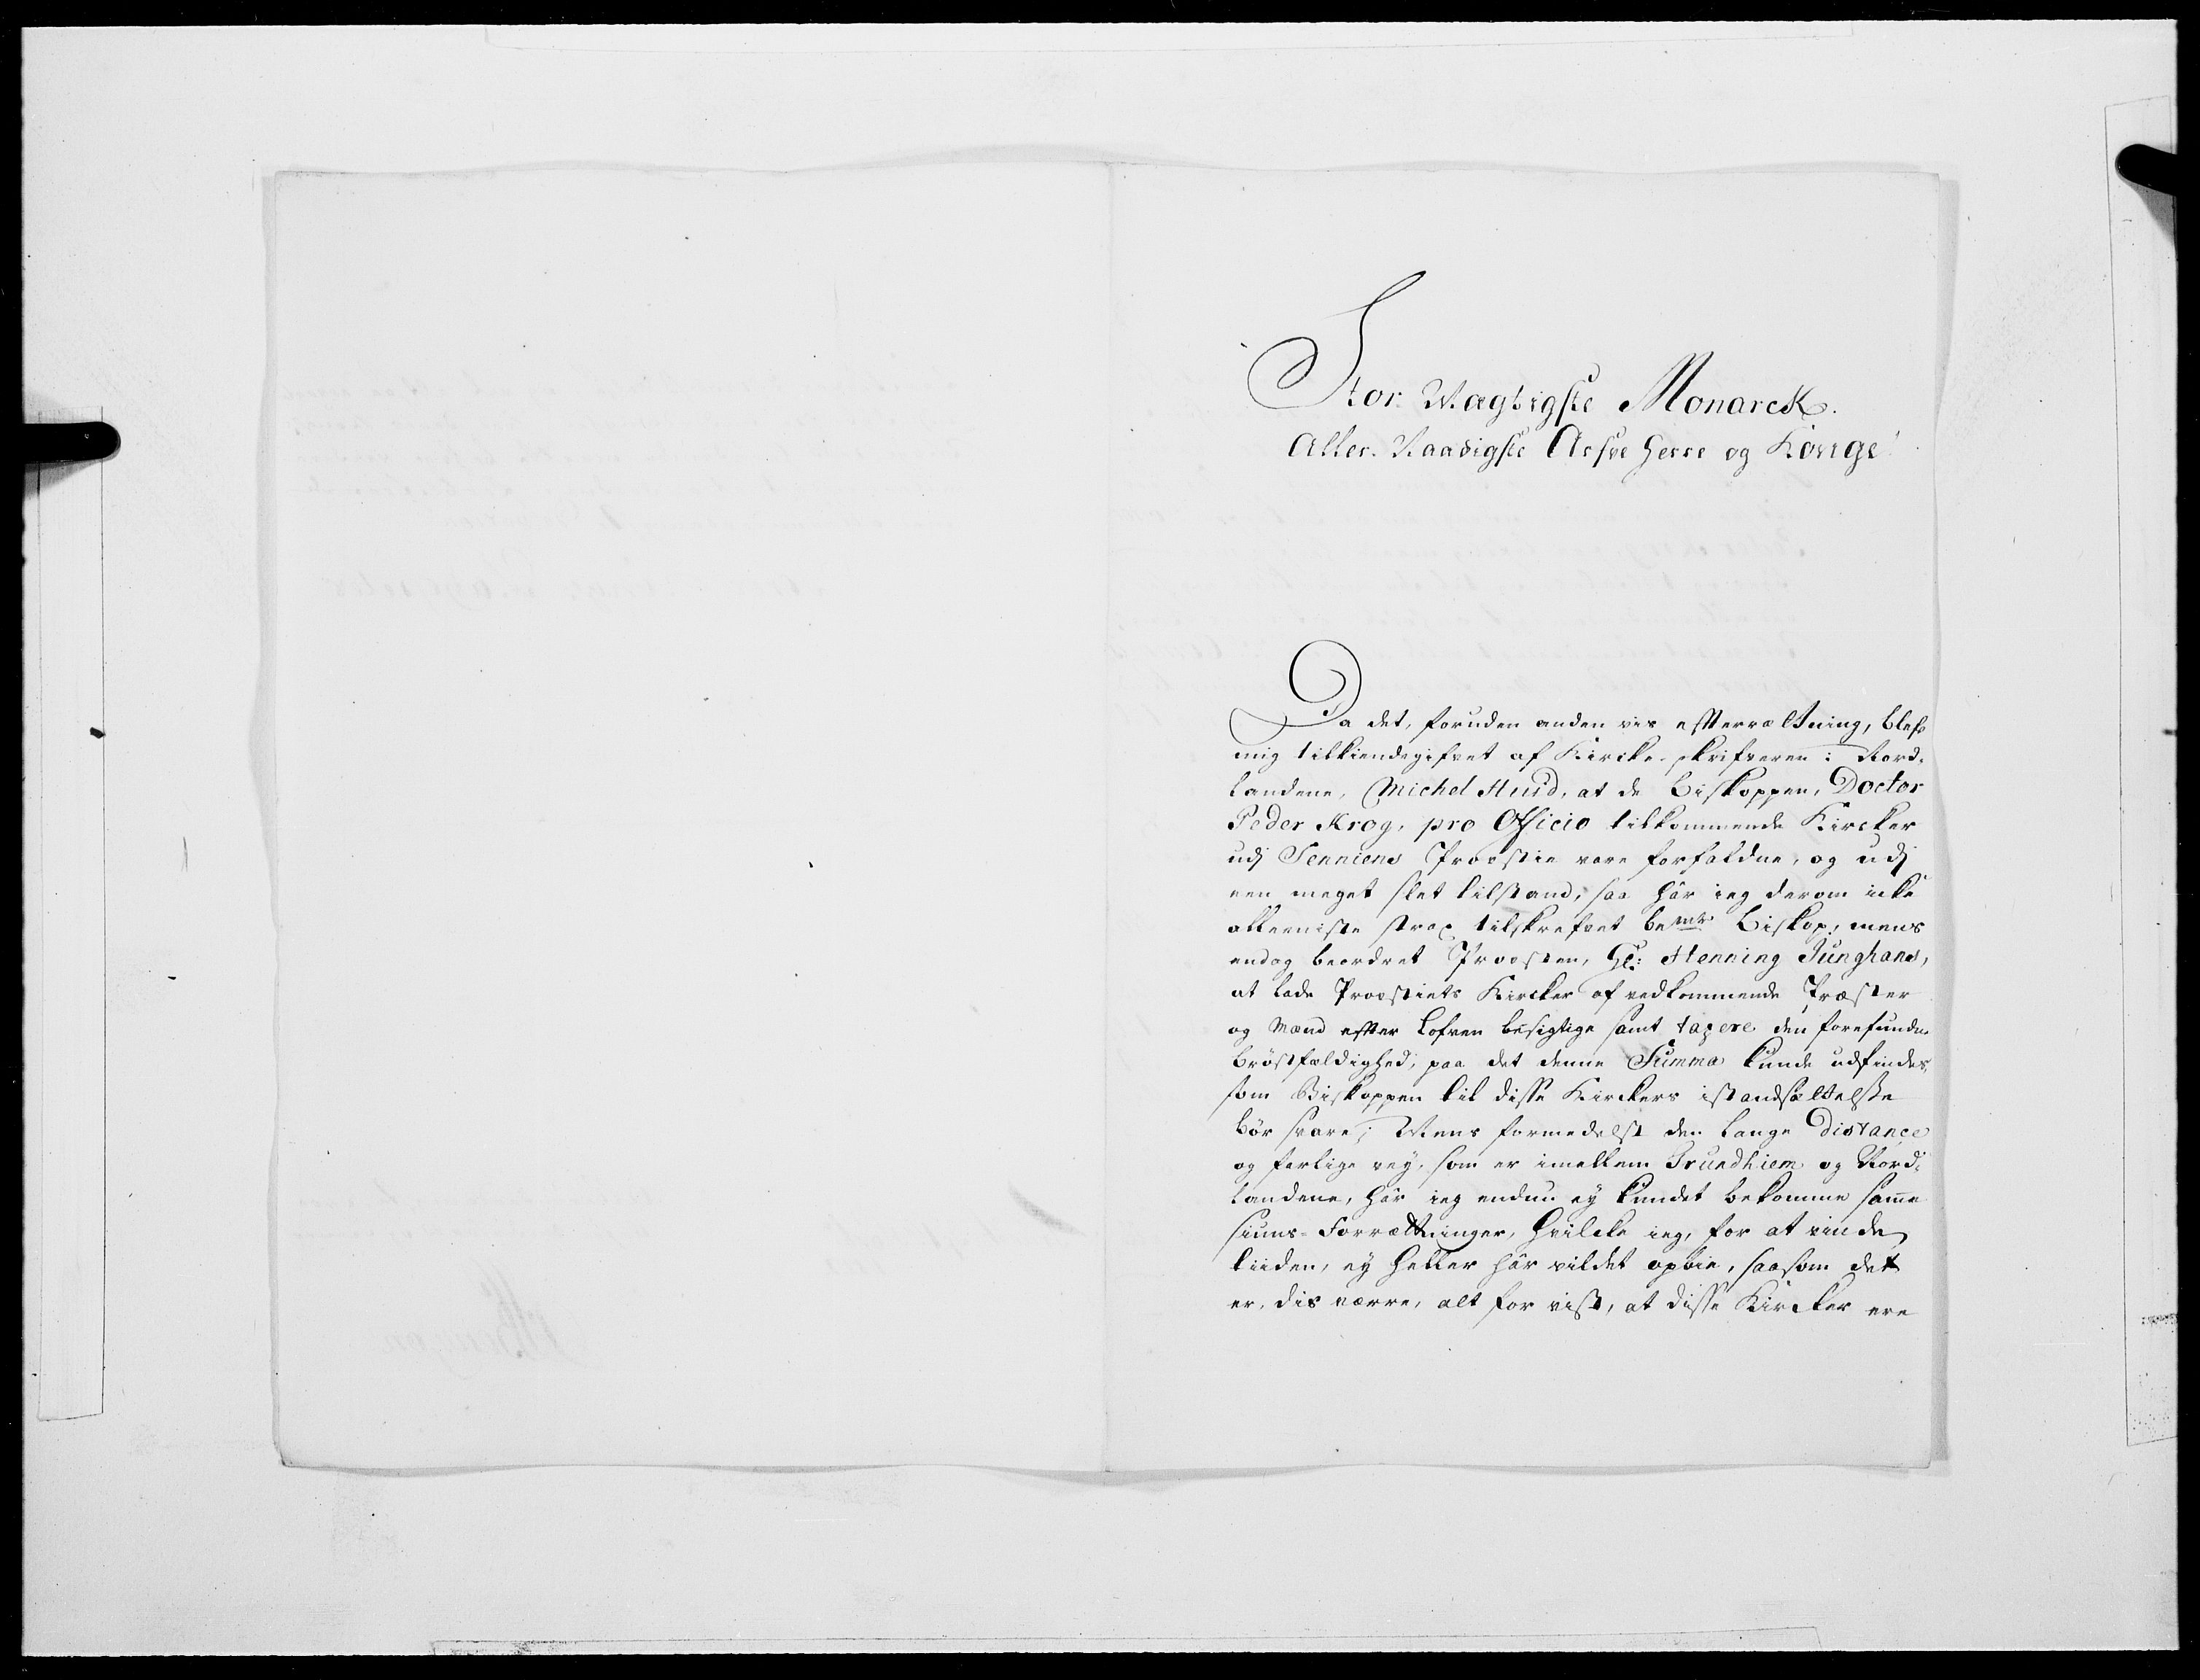 Stor Mægtigste Monarck.
Aller-Naadigste Arfve Herre og Konge!
Da det, foruden anden vis efterrætning, blef
mig tilkiendegifvet af Kircke-skrifveren i Nord-
landene, Michel Huid, at de Biskoppen, Doctor
Peder Krog, pro Officio tilkommende Kircker
udj Senniens Proostie vare forfaldne, og udj
een meget slet tilstand, saa hâr ieg derom icke
alleeniste strax tilskrefvet bemte Biskop, mens
endog beordret Proosten, Hr: Henning Junghans,
at lade Proostiets Kircker af vedkommende Præster
og Mænd efter lofven besigtige samt taxere den forefundne
brøstfældighed, paa det denne Summa kunde udfindes,
som Biskoppen til disse Kirckers istandsættelsse
bör svare; Mens formedelst den lange Distance
og farlige vey, som er imellem Trundhiem og Nord-
landene, hâr ieg endnu ey kundet bekomme same
siuns-Forrætninger, hvilcke ieg, for at vinde
tiiden, ey heller hâr vildet opbie, saasom det
er, dis værre, alt for vist, at disse Kircker ere